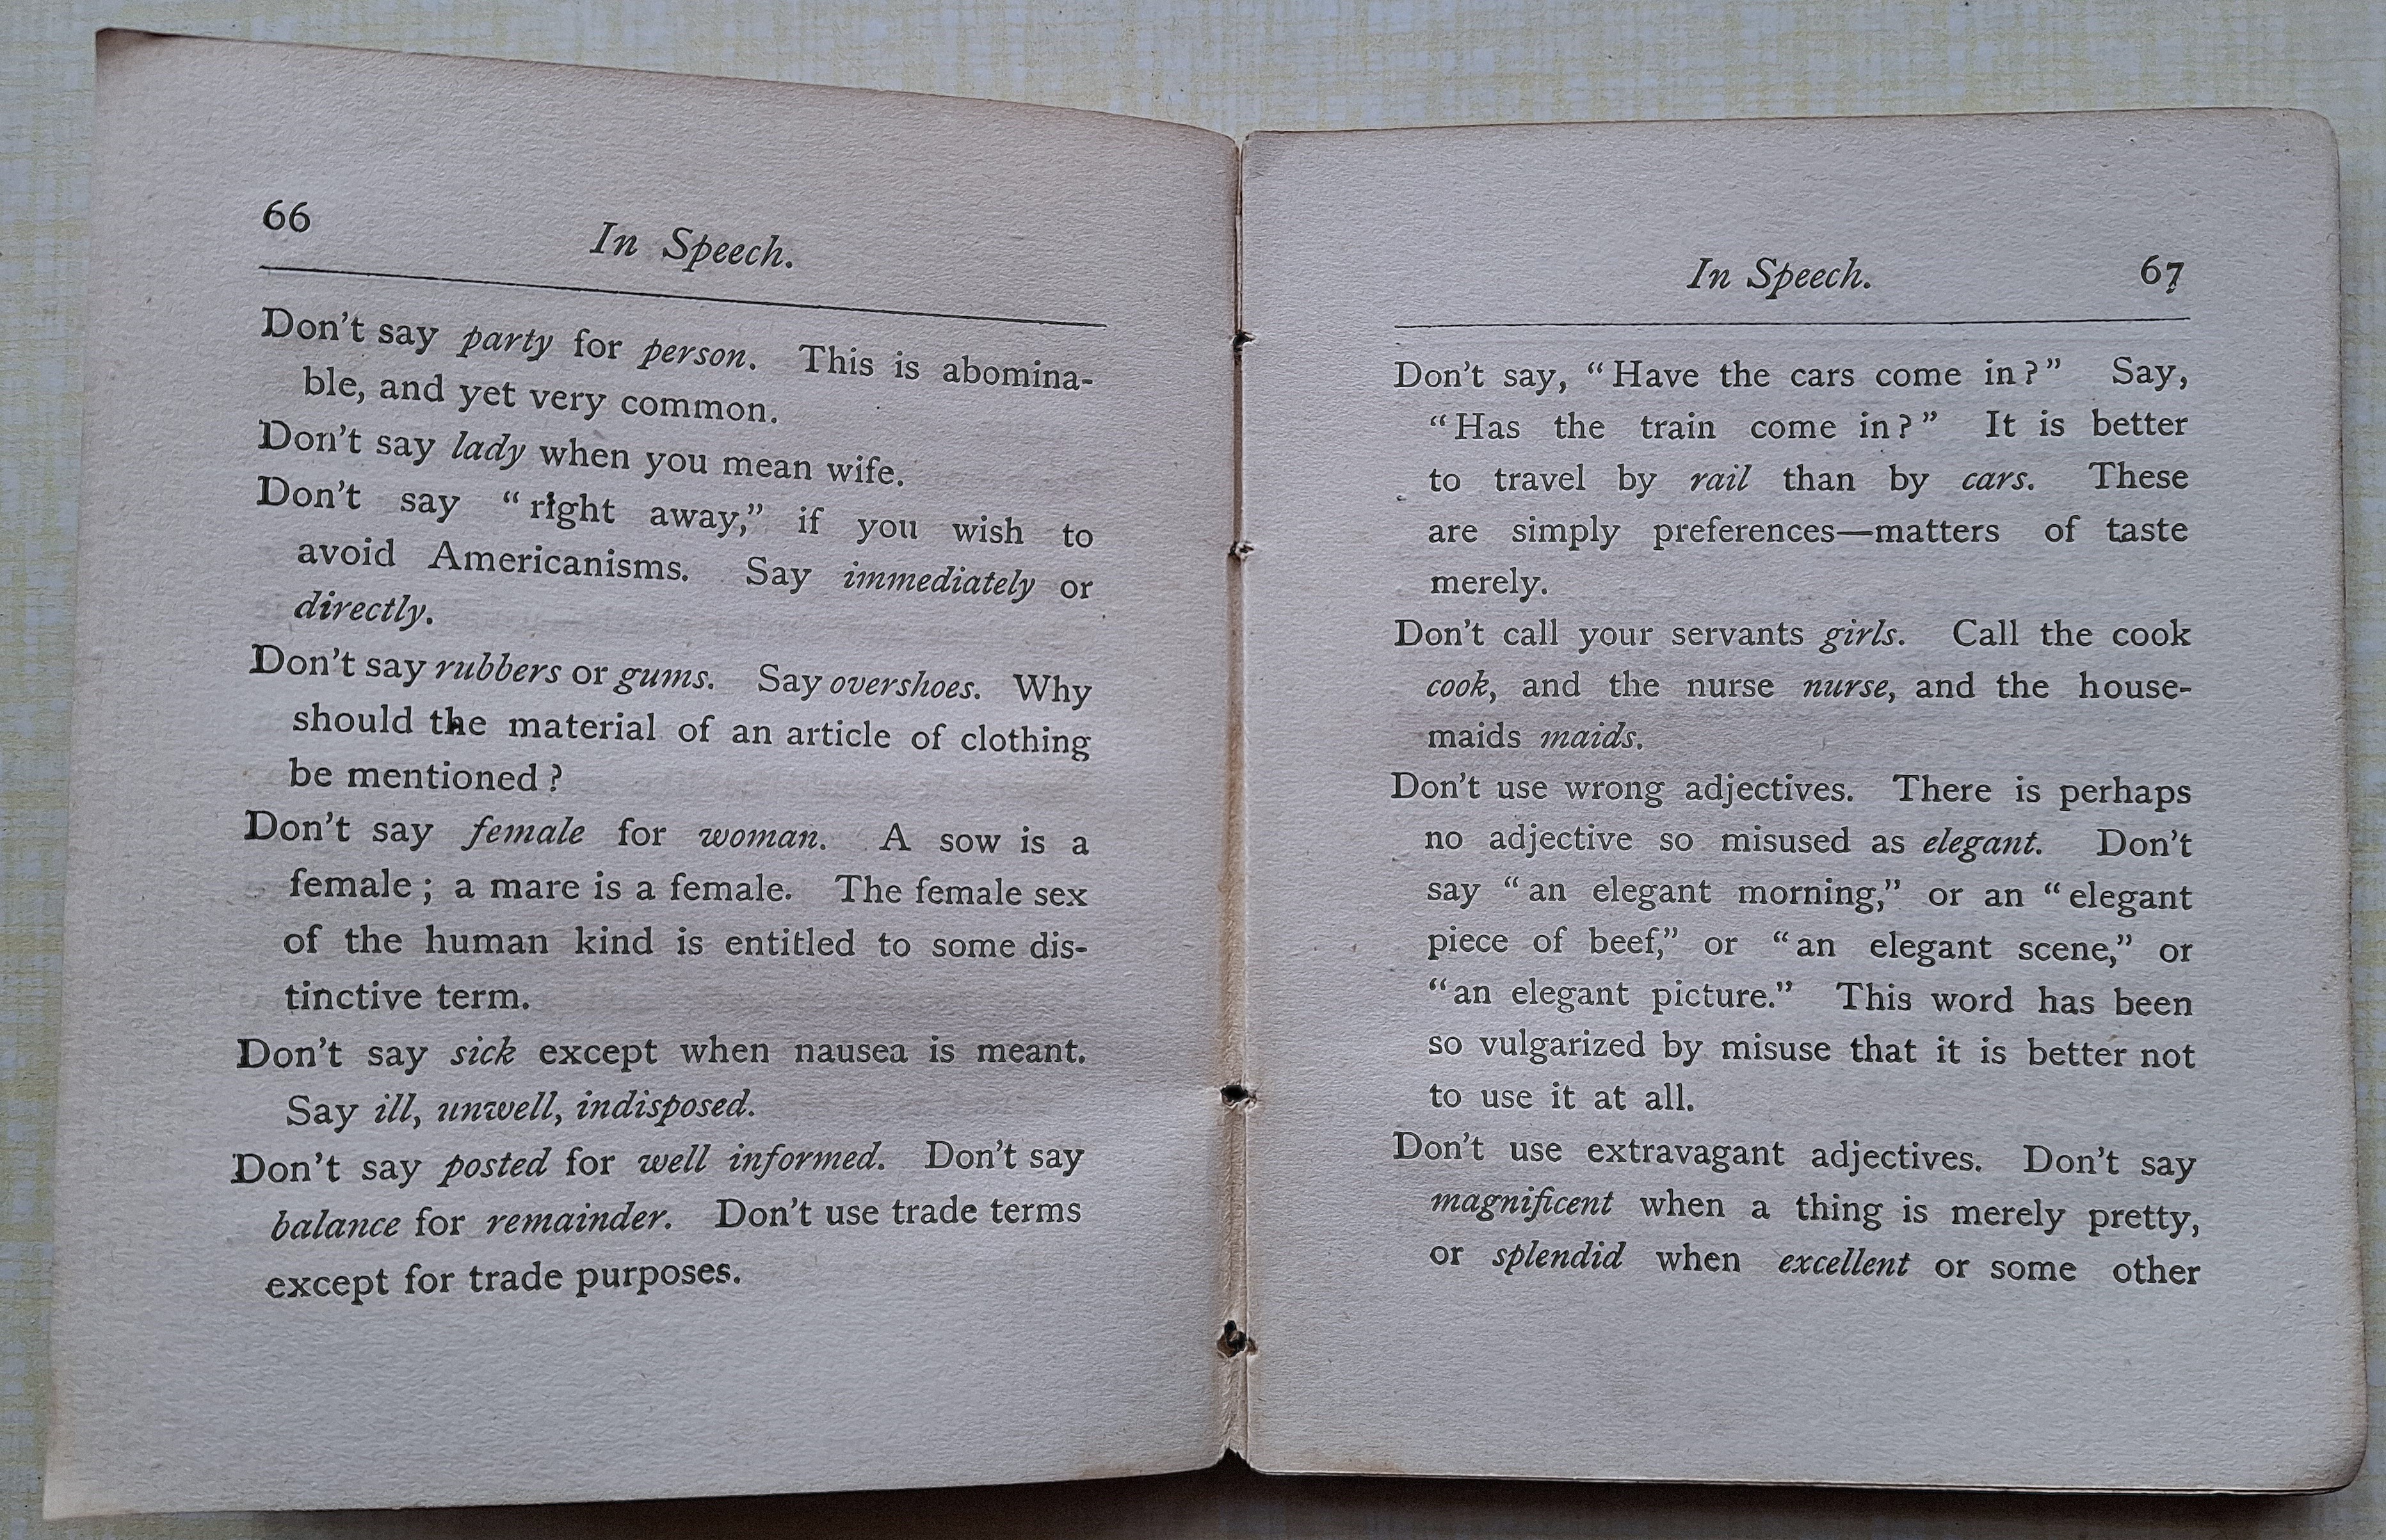 66
In Speech.
Don't say party for person. This is abomina-
ble, and yet very common.
Don't say lady when you mean wife.
Don't say “right away,” if you wish to
avoid Americanisms. Say immediately or
directly.
Don't say rubbers or gums. Say overshoes. Why
should the material of an article of clothing
be mentioned?
Don't say female for woman. A sow is a
female; a mare is a female. The female sex
of the human kind is entitled to some dis-
tinctive term.
Don't say sick except when nausea is meant.
Say ill, unwell, indisposed.
Don't say posted for well informed. Don't say
balance for remainder. Don't use trade terms
except for trade purposes.
In Speech. 67
Don't say, “Have the cars come in?” Say,
“Has the train come in?” It is better
to travel by rail than by cars. These
are simply preferences—matters of taste
merely.
Don't call your servants girls. Call the cook
cook, and the nurse nurse, and the house-
maids maids.
Don't use wrong adjectives. There is perhaps
no adjective so misused as elegant. Don't
say “an elegant morning,” or an “elegant
piece of beef,” or “an elegant scene,” or
“an elegant picture.” This word has been
so vulgarized by misuse that it is better not
to use it at all.
Don't use extravagant adjectives. Don't say
magnificent when a thing is merely pretty,
or splendid when excellent or some other